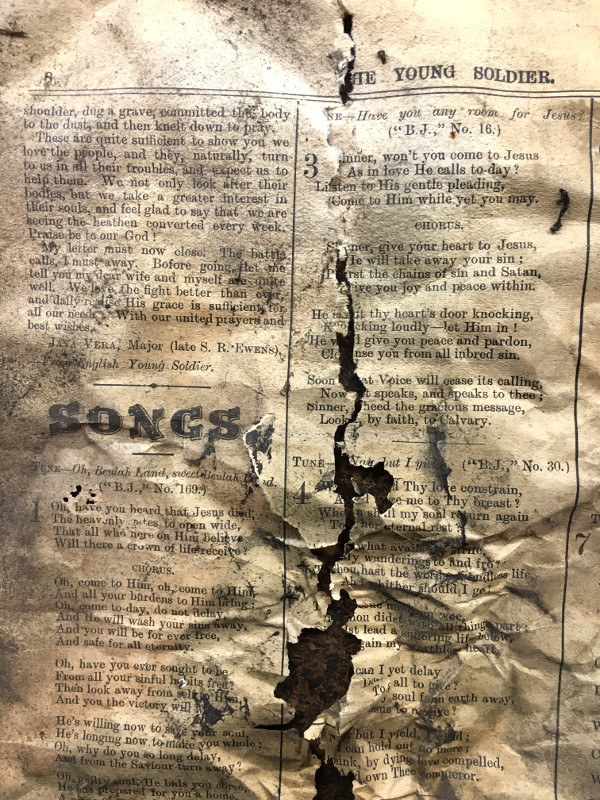 8.
THE YOUNG SOLDIER.
shoulder, dug a grave, committed the body
to the dust, and then knelt down to pray.
These are quite sufficient to show you we
love the people, and they, naturally, turn
to us in all their troubles, and expect us to
help them. We not only look after their
bodies, but we take a greater interest in
their souls, and feel glad to say that we are
seeing the heathen converted every week.
Praise be to our God!
My letter must now close. The battle
calls, I must away. Before going, let me
tell you my dear wife and myself are quite
well. We love the fight better than ever,
and daily realise His grace is sufficient for
all our needs. With our united prayers and
best wishes,
JAYA VERA, Major (late S. R. EWENS),
From English Young Soldier.
SONGS
TUNE—Oh, Beulah Land, sweet Beulah Land.
("B.J.," No. 169.)
1 Oh, have you heard that Jesus died,
The heavenly gates to open wide,
That all who here on Him believe
Will there a crown of life receive?
CHORUS.
Oh, come to Him, oh, come to Him,
And all your burdens to Him bring;
Oh, come to-day, do not delay,
And He will wash your sins away,
And you will be for ever free,
And safe for all eternity.
Oh, have you ever sought to be
From all your sinful habits free?
Then look away from self to Him,
And you the victory will
He's willing now to save your soul,
He's longing now to make you whole;
Oh, why do you so long delay,
And from the Saviour turn away?
Oh, guilty soul, He bids you come,
He has prepared for you a home,
NE—Have you any room for Jesus?
("B.J.," No. 16.)
3 Sinner, won't you come to Jesus
As in love He calls to-day?
Listen to His gentle pleading,
Come to Him while yet you may.
CHORUS.
Sinner, give your heart to Jesus,
He will take away your sin;
Burst the chains of sin and Satan,
Give you joy and peace within.
He is at thy heart's door knocking,
Knocking loudly—let Him in!
He will give you peace and pardon,
Cleanse you from all inbred sin.
Soon that Voice will cease its calling,
Now it speaks, and speaks to thee;
Sinner, heed the gracious message,
Look, by faith, to Calvary.
TUNE— Nay, but I yield ("B.J.," No. 30.)
4 Thy love constrain,
me to Thy breast?
When shall my soul return again
To her eternal rest?
what avails strife,
My wanderings to and fro?
Thou hast the words of endless life,
Ah! whither should I go?
Thou didst with all things part;
lead a suffering life below,
gain my worthless heart.
can I yet delay
all to give?
soul from earth away,
Jesus to receive?
but I yield, I yield;
I can hold out no more;
sink, by dying love compelled,
And own Thee conqueror.
7